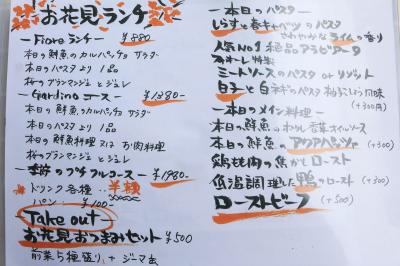 お花見ランチ
ーFioreランチー ¥880
本日の鮮魚のカルパッチョ サラダ
本日のパスタより1品
桜のブランマンジェとジュレ
ーGardinoコースー ¥1380ー
本日の鮮魚カルパッチョ サラダ
本日のパスタより1品
本日の鮮魚料理又はお肉料理
桜のブランマンジェとジュレ
プチフルコースー ¥1980ー
ドリンク各種 半額
パン ¥100ー
Take out
お花見おつまみセット ¥500
前菜5種盛り +
ー本日のパスター
しらすと春キャベツのパスタ
さわやかなライムの香り
人気No1 絶品アラビアータ
ミートソースのパスタ or リゾット
白子と白ネギのパスタ 柚子こしょう風味
(+300円)
ー本日のメイン料理ー
本日の鮮魚の
本日の鮮魚のアクアパッツァ (+300)
鶏もも肉の ロースト
低温調理した鴨のロースト (+300)
ローストビーフ (+500)